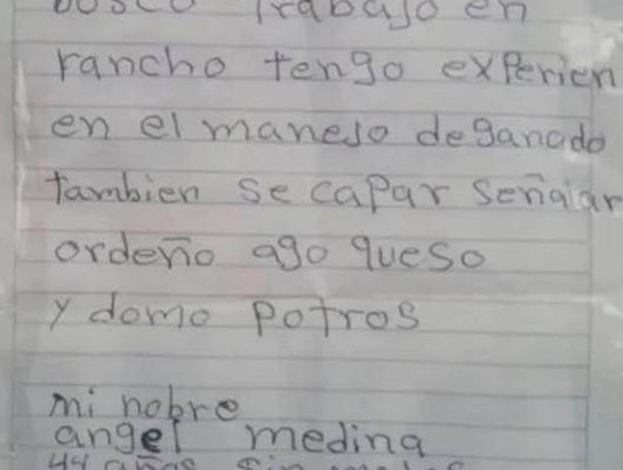 busco trabajo en
rancho tengo experien
en el manejo de ganado
tambien se capar señalar
ordeño ago queso
y domo potros
mi nobre
angel medina
44 años sin